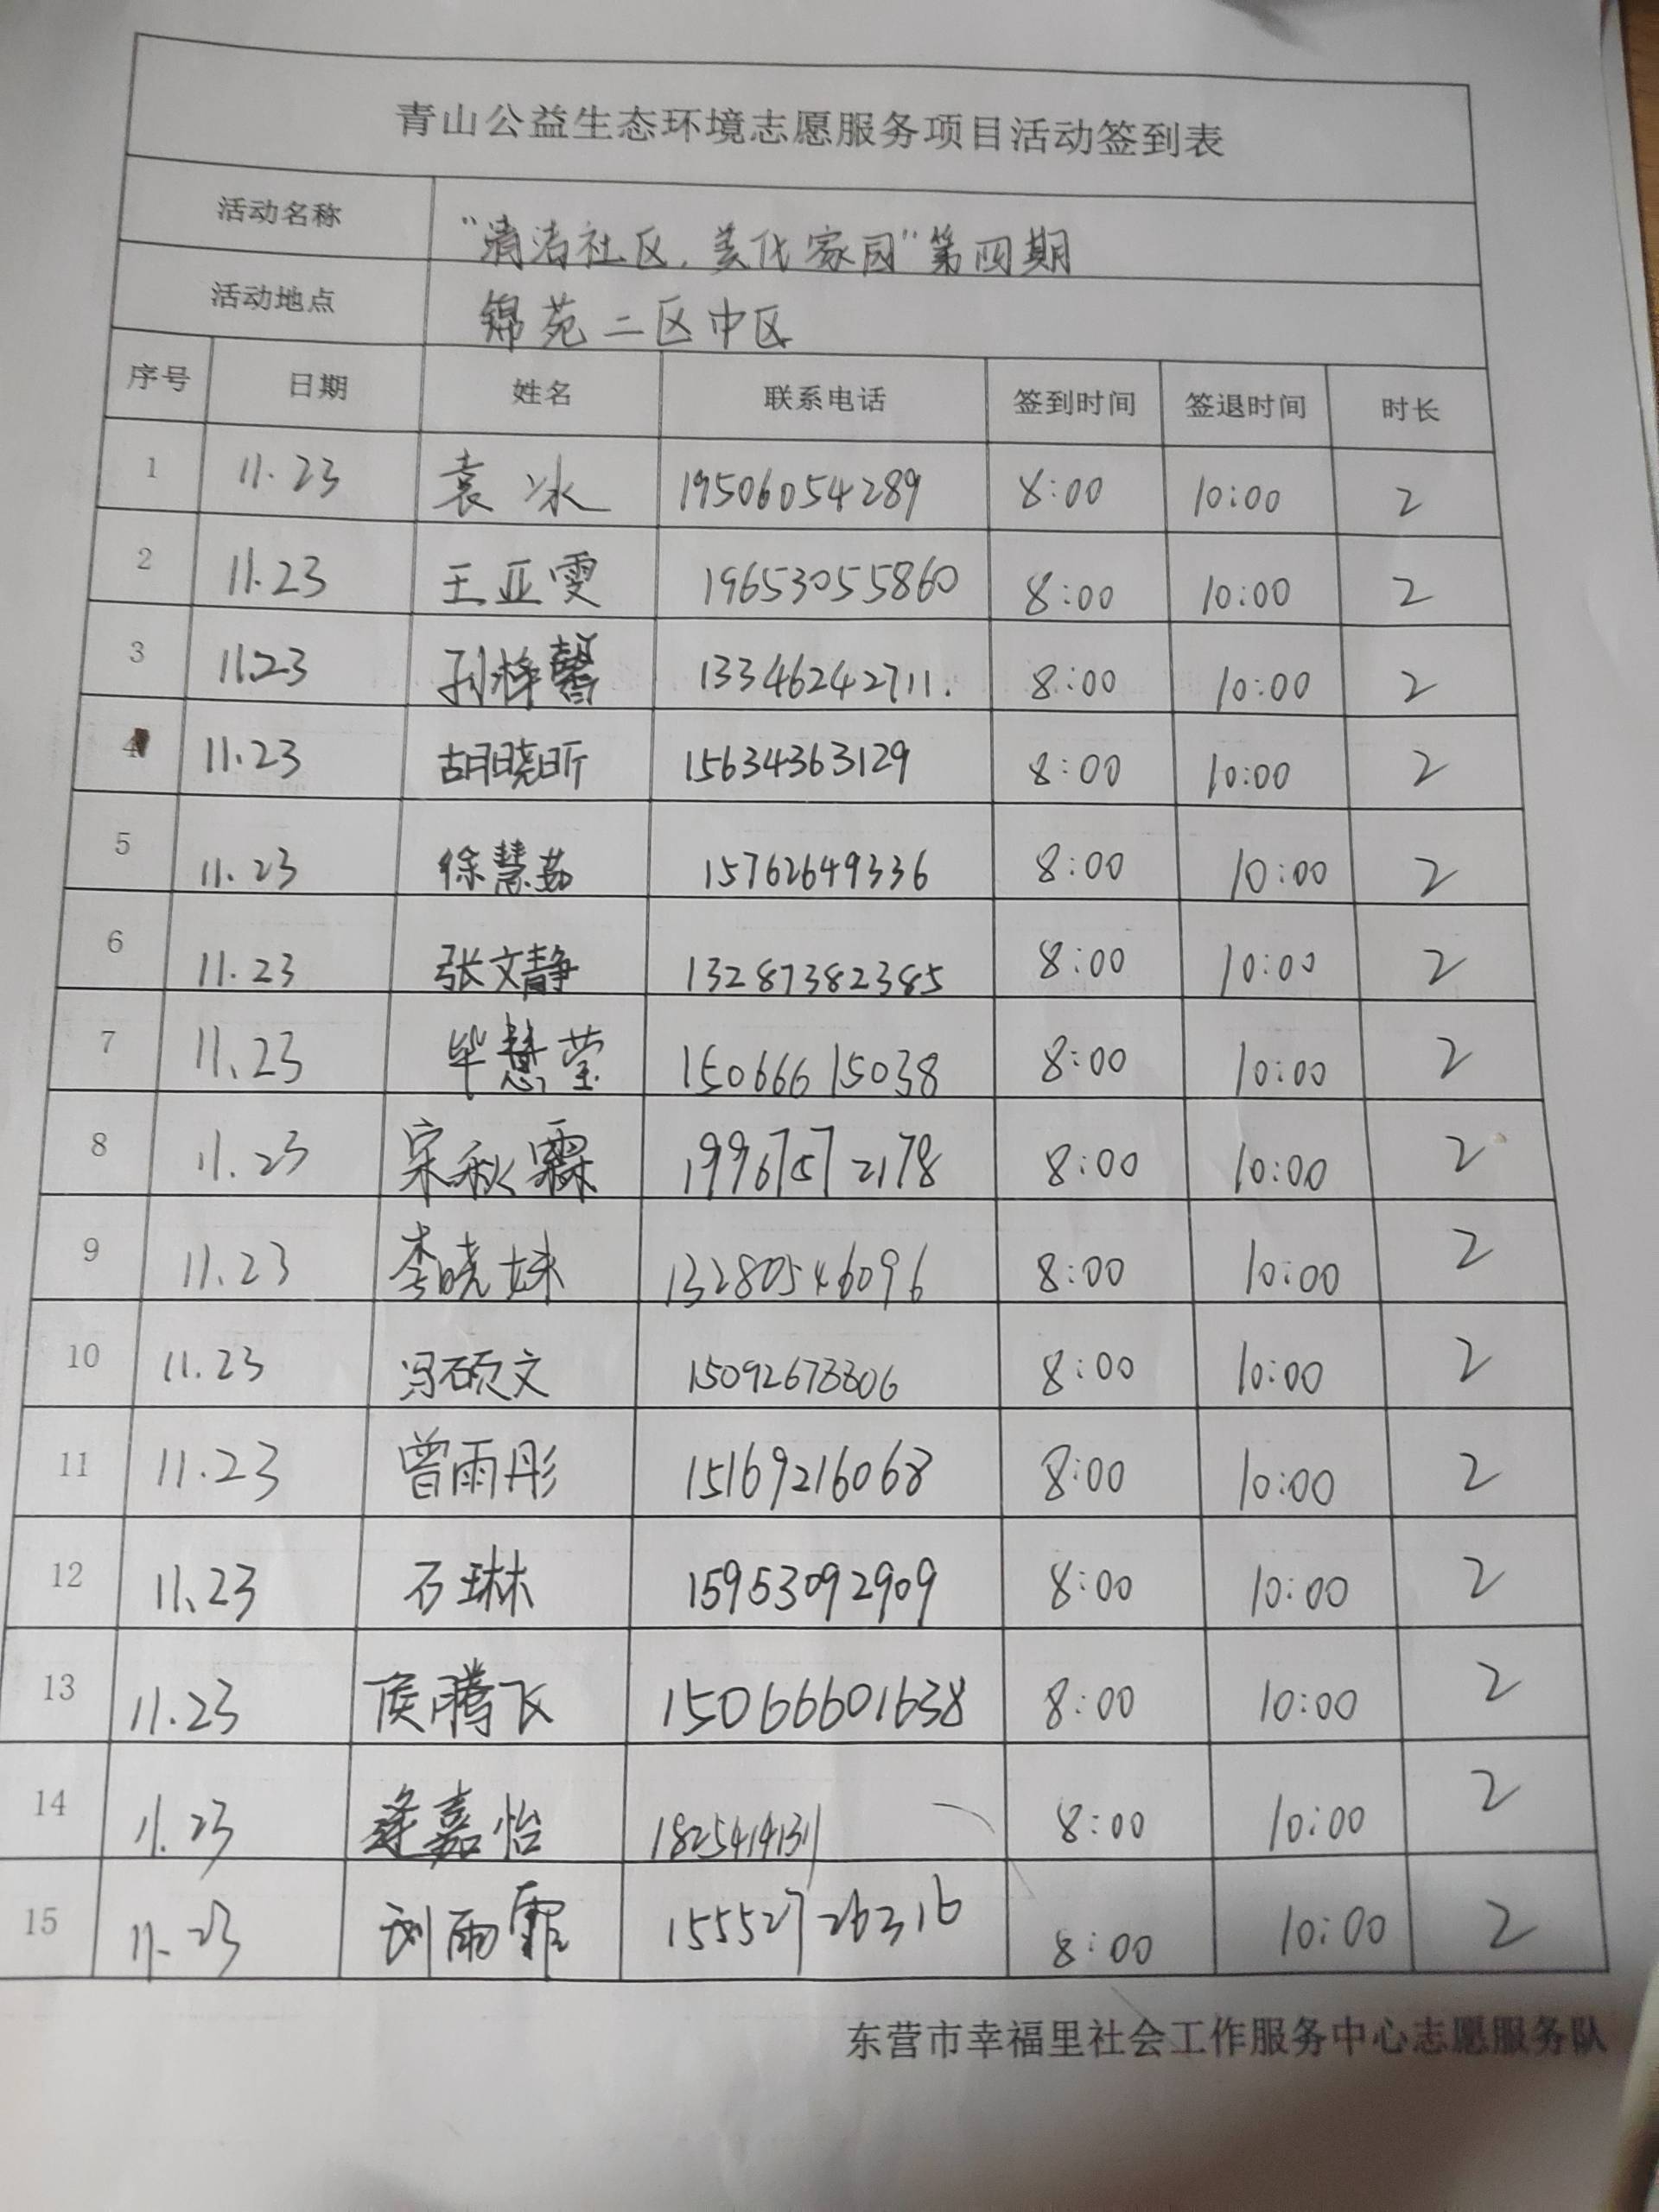 青山公益生态环境志愿服务项目活动签到表
活动名称 "清洁社区,美化家园"第四期
活动地点 锦苑二区中区
序号 日期 姓名 联系电话 签到时间 签退时间 时长
1 11.23 袁冰 19506054289 8:00 10:00 2
2 11.23 王亚雯 19653055860 8:00 10:00 2
3 11.23 孙梓馨 13346242711. 8:00 10:00 2
4 11.23 胡晓昕 15634363129 8:00 10:00 2
5 11.23 徐慧茹 15762649336 8:00 10:00 2
6 11.23 张文静 13287382385 8:00 10:00 2
7 11.23 毕慧莹 15066615038 8:00 10:00 2
8 11.23 宋秋霖 19967572178 8:00 10:00 2
9 11.23 李晓妹 13280546096 8:00 10:00 2
10 11.23 冯硕文 15092673806 8:00 10:00 2
11 11.23 曾雨彤 15169216068 8:00 10:00 2
12 11.23 石琳 15953092909 8:00 10:00 2
13 11.23 侯腾飞 15066601638 8:00 10:00 2
14 11.23 逄嘉怡 8:00 10:00 2
15 11.23 刘雨霏 15552726316 8:00 10:00 2
东营市幸福里社会工作服务中心志愿服务队